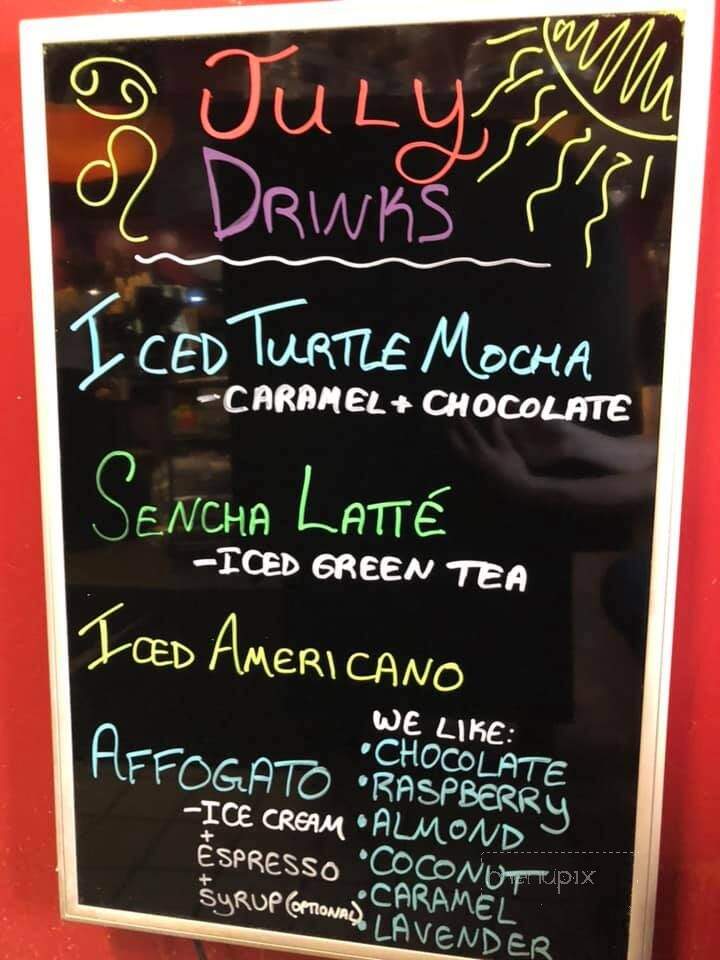 July
DRINKS
ICED TURTLE MOCHA
-CARAMEL + CHOCOLATE
SENCHA LATTÉ
-ICED GREEN TEA
ICED AMERICANO
AFFOGATO
-ICE CREAM
+
ESPRESSO
+
SYRUP (OPTIONAL)
WE LIKE:
•CHOCOLATE
•RASPBERRY
•ALMOND
•COCONUT
•CARAMEL
•LAVENDER
menupix